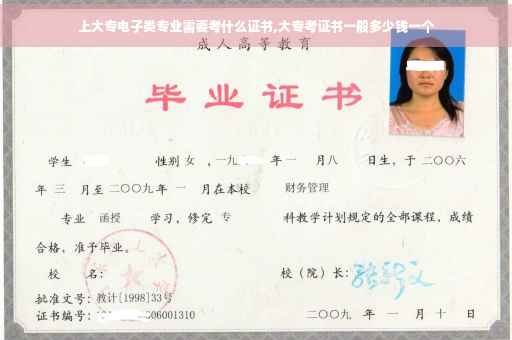 上大专电子类专业需要考什么证书,大专考证书一般多少钱一个
成人高等教育
毕业证书
学生 性别 女 ,一九 年 一 月八 日生,于 二〇〇六
年 三 月至二〇〇九年 一 月在本校 财务管理
专业 函授 学习,修完 专 科教学计划规定的全部课程,成绩
合格,准予毕业。
校 名: 校(院)长:
批准文号:教计[1998]33号
证书编号: 06001310 二〇〇九 年 一 月 十 日